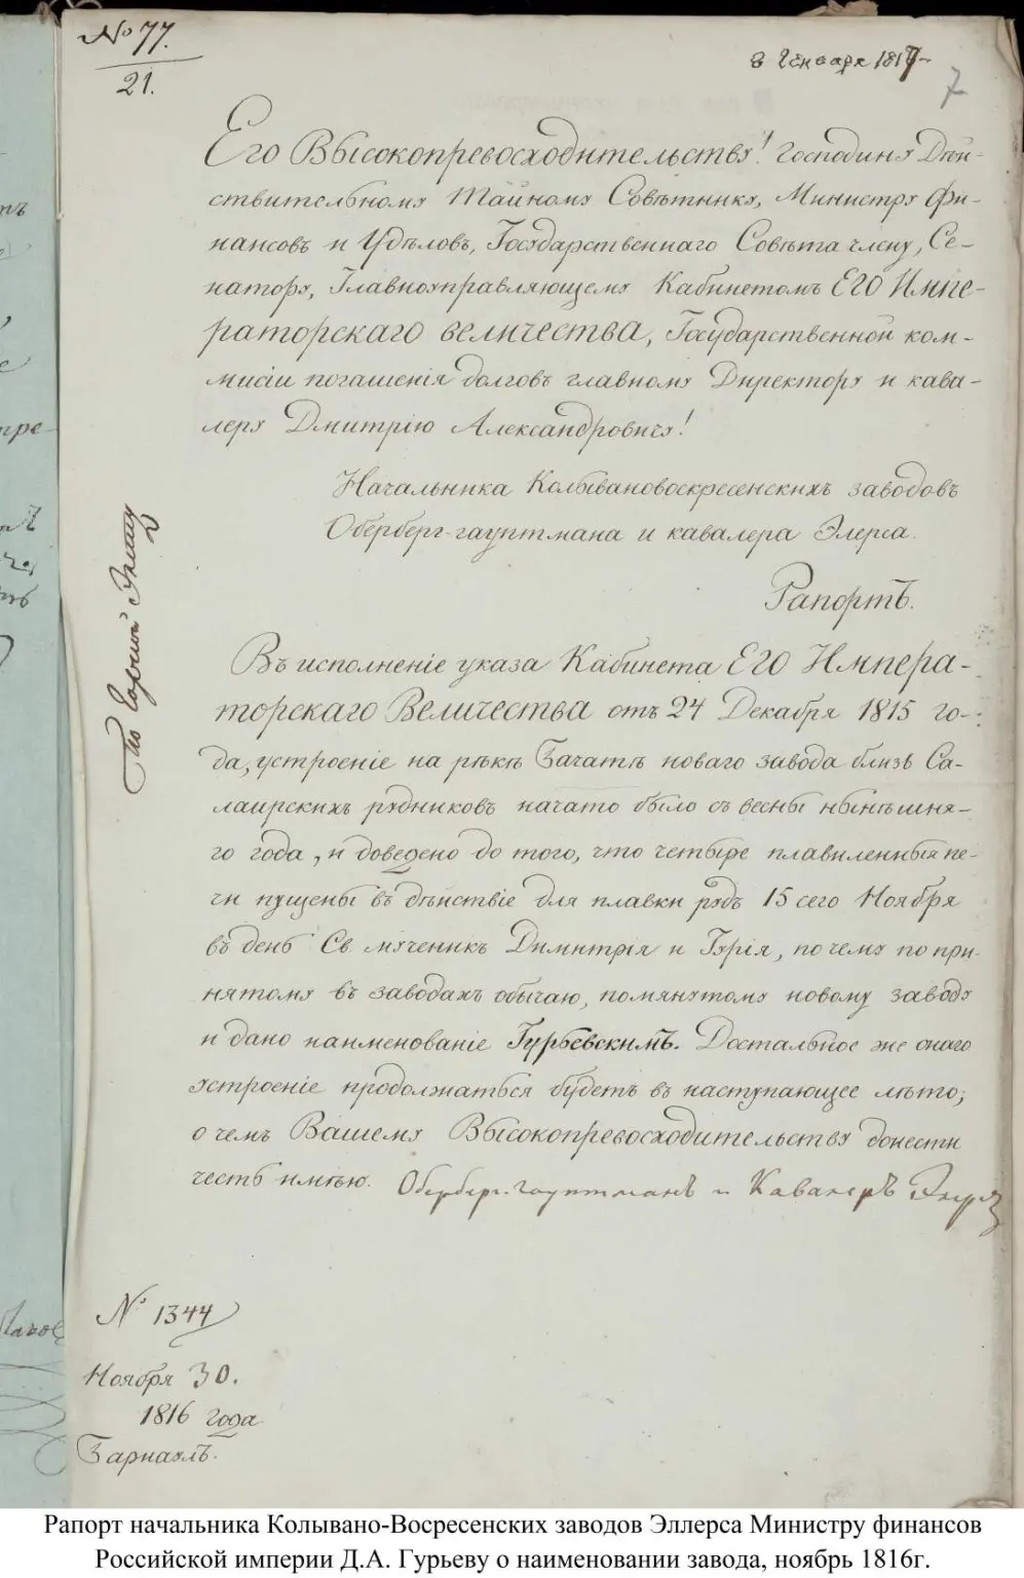 № 77.
21.
8 Генваря 1817
7
Его Высокопревосходительству! Господину Дѣй-
ствительному Тайному Совѣтнику, Министру фи-
нансовъ и Удѣловъ, Государственнаго Совѣта члену, Се-
натору, Главноуправляющему Кабинетомъ ЕГО Импе-
раторскаго величества, Государственной ком-
мисіи погашенія долговъ главному Директору и кава-
леру Дмитрію Александровичу!
Начальника Колывановоскресенскихъ заводовъ
Оберберг-гауптмана и кавалера Элерса.
Рапортъ.
Въ исполненіе указа Кабинета ЕГО Импера-
торскаго Величества отъ 24 Декабря 1815 го-
да, устроеніе на рѣкѣ Бачатѣ новаго завода близь Са-
лаирскихъ рудниковъ начато было съ весны нынѣшня-
го года, и доведено до того, что четыре плавиленныя пе-
чи пущены въ дѣйствіе для плавки рудъ 15 сего Ноября
въ день Св. мученикъ Димитрія и Гурія, по чему по при-
нятому въ заводахъ обычаю, помянутому новому заводу
и дано наименованіе Гурьевскимъ. Достальное же онаго
устроеніе продолжаться будетъ въ наступающее лѣто;
о чемъ Вашему Высокопревосходительству донести
честь имѣю. Оберберг-гауптманъ и Кавалеръ Элерсъ
По Горной
№ 1344
Ноября 30.
1816 года
Барнаулъ.
Рапорт начальника Колывано-Восресенских заводов Эллерса Министру финансов
Российской империи Д.А. Гурьеву о наименовании завода, ноябрь 1816г.